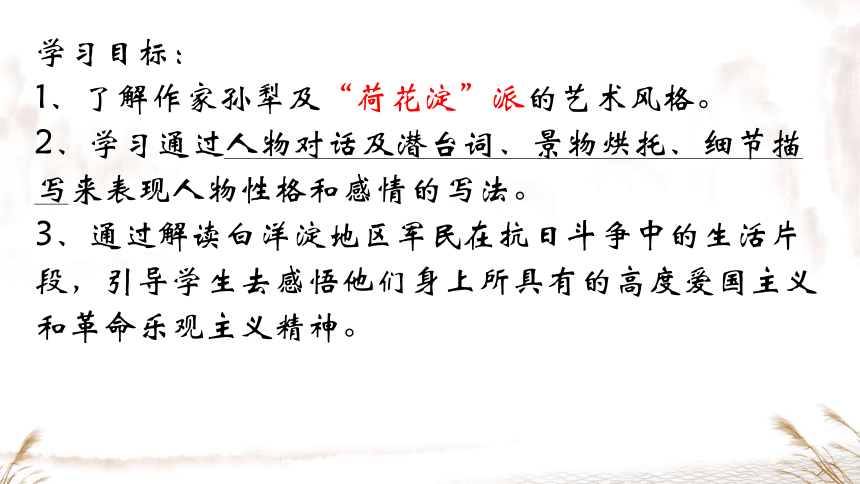 学习目标：
1、了解作家孙犁及“荷花淀”派的艺术风格。
2、学习通过人物对话及潜台词、景物烘托、细节描
写来表现人物性格和感情的写法。
3、通过解读白洋淀地区军民在抗日斗争中的生活片
段，引导学生去感悟他们身上所具有的高度爱国主义
和革命乐观主义精神。